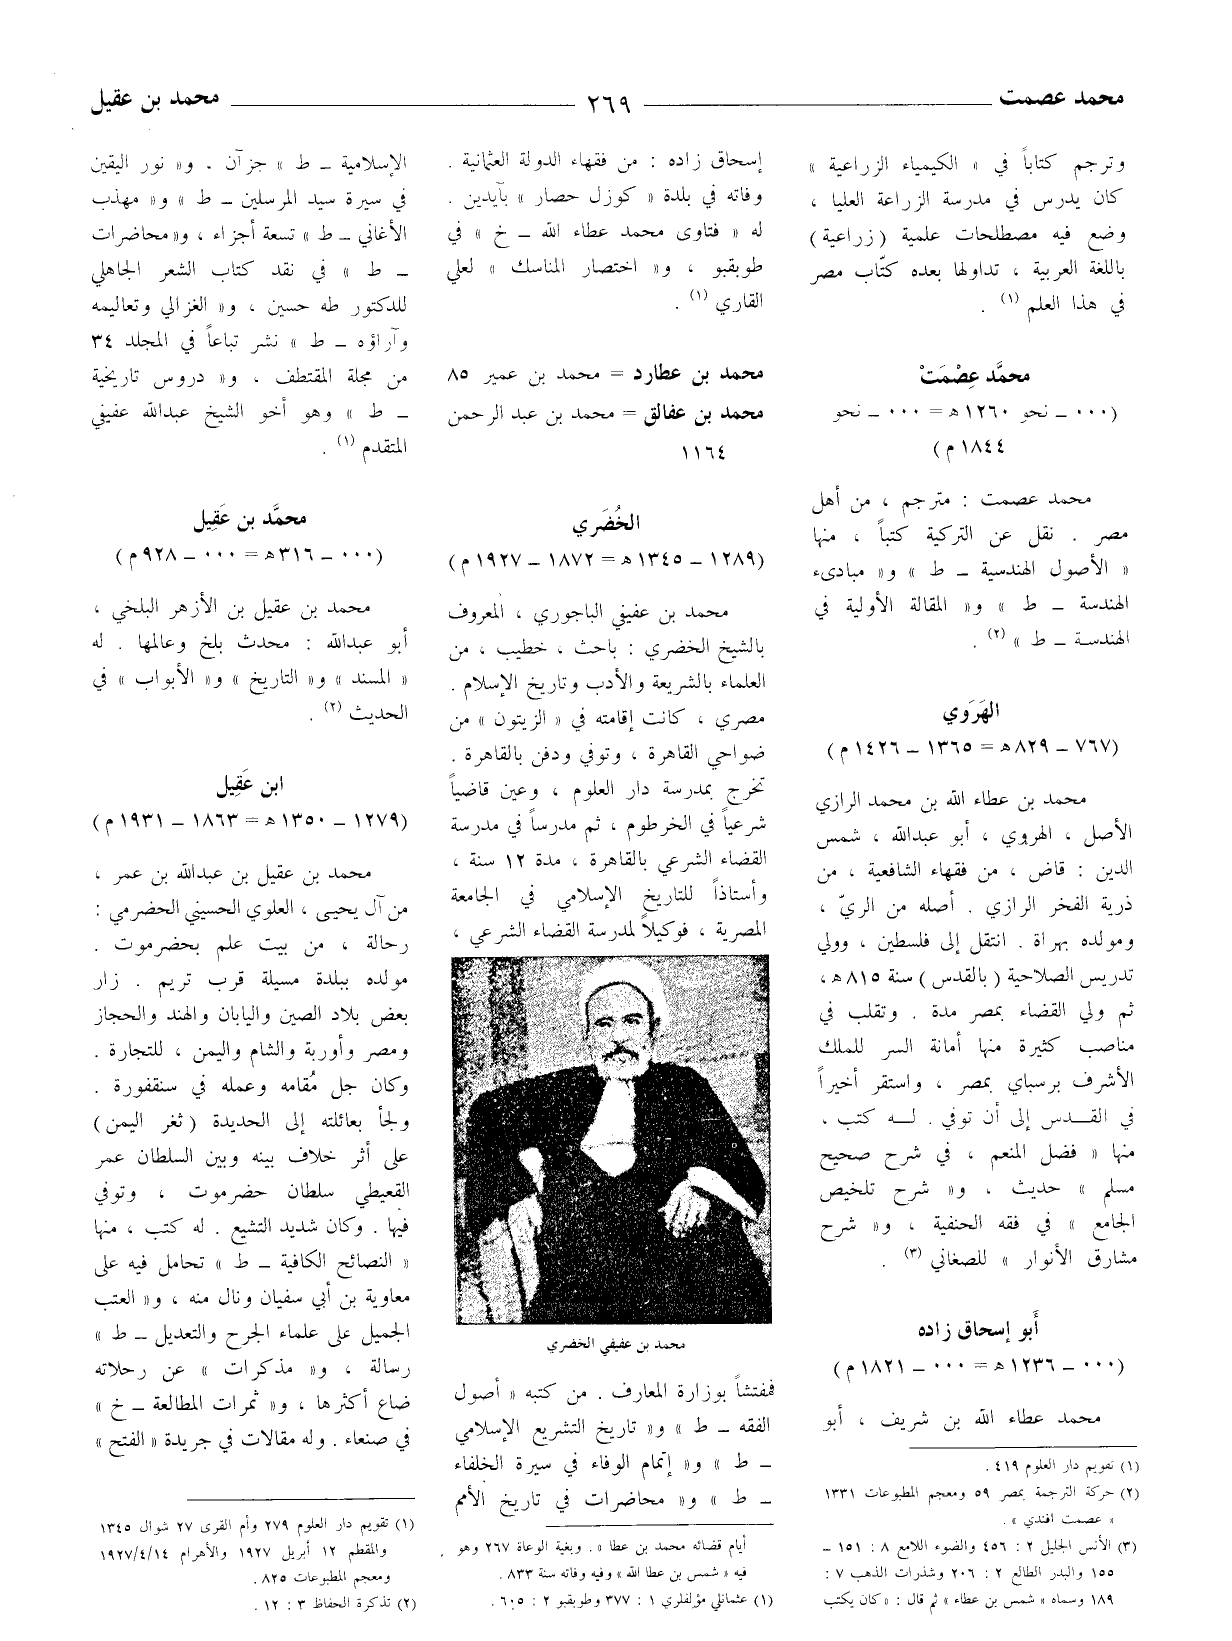 محمد عصمت
٢٦٩
محمد بن عقيل
وترجم كتاباً في « الكيمياء الزراعية »
كان يدرس في مدرسة الزراعة العليا ،
وضع فيه مصطلحات علمية (زراعية)
باللغة العربية ، تداولها بعده كتّاب مصر
في هذا العلم (١) .
محمَّد عِصْمَتْ
(٠٠٠ ـ نحو ١٢٦٠ ھ = ٠٠٠ ـ نحو
١٨٤٤ م)
محمد عصمت : مترجم ، من أهل
مصر . نقل عن التركية كتباً ، منها
« الأصول الهندسية ـ ط » و« مبادىء
الهندسة ـ ط » و« المقالة الأولية في
الهندسة ـ ط » (٢) .
الهَرَوي
(٧٦٧ ـ ٨٢٩ ھ = ١٣٦٥ ـ ١٤٢٦ م)
محمد بن عطاء الله بن محمد الرازي
الأصل ، الهروي ، أبو عبدالله ، شمس
الدين : قاض ، من فقهاء الشافعية ، من
ذرية الفخر الرازي . أصله من الريّ ،
ومولده بهراة . انتقل إلى فلسطين ، وولي
تدريس الصلاحية ( بالقدس ) سنة ٨١٥ ھ،
ثم ولي القضاء بمصر مدة . وتقلب في
مناصب كثيرة منها أمانة السر للملك
الأشرف برسباي بمصر ، واستقر أخيراً
في القدس إلى أن توفي . له كتب ،
منها « فضل المنعم ، في شرح صحيح
مسلم » حديث ، و« شرح تلخيص
الجامع » في فقه الحنفية ، و« شرح
مشارق الأنوار » للصغاني (٣) .
أَبو إسحاق زاده
(٠٠٠ ـ ١٢٣٦ ھ = ٠٠٠ ـ ١٨٢١ م)
محمد عطاء الله بن شريف ، أبو
(١) تقويم دار العلوم ٤١٩ .
(٢) حركة الترجمة بمصر ٥٩ ومعجم المطبوعات ١٣٣١
« عصمت افندي » .
(٣) الأنس الجليل ٢ : ٤٥٦ والضوء اللامع ٨ : ١٥١ ـ
١٥٥ والبدر الطالع ٢ : ٢٠٦ وشذرات الذهب ٧ :
١٨٩ وسماه « شمس بن عطاء » ثم قال : « كان يكتب
إسحاق زاده : من فقهاء الدولة العثمانية .
وفاته في بلدة « كوزل حصار » بآيدين .
له « فتاوى محمد عطاء الله ـ خ » في
طوبقبو ، و« اختصار المناسك » لعلي
القاري (١) .
محمد بن عطارد = محمد بن عمير ٨٥
محمد بن عفالق = محمد بن عبد الرحمن
١١٦٤
الخُضَري
(١٢٨٩ ـ ١٣٤٥ ھ = ١٨٧٢ ـ ١٩٢٧ م)
محمد بن عفيفي الباجوري ، المعروف
بالشيخ الخضري : باحث ، خطيب ، من
العلماء بالشريعة والأدب وتاريخ الإسلام .
مصري ، كانت إقامته في « الزيتون » من
ضواحي القاهرة ، وتوفي ودفن بالقاهرة .
تخرج بمدرسة دار العلوم ، وعين قاضياً
شرعياً في الخرطوم ، ثم مدرساً في مدرسة
القضاء الشرعي بالقاهرة ، مدة ١٢ سنة ،
وأستاذاً للتاريخ الإسلامي في الجامعة
المصرية ، فوكيلاً لمدرسة القضاء الشرعي ،
محمد بن عفيفي الخضري
فمفتشاً بوزارة المعارف . من كتبه « أصول
الفقه ـ ط » و« تاريخ التشريع الإسلامي
ـ ط » و« إتمام الوفاء في سيرة الخلفاء
ـ ط » و« محاضرات في تاريخ الأمم
أيام قضائه محمد بن عطا » . وبغية الوعاة ٢٦٧ وهو
فيه « شمس بن عطا الله » وفيه وفاته سنة ٨٣٣ .
(١) عثمانلي مؤلفلري ١ : ٣٧٧ وطوبقبو ٢ : ٦٠٥ .
الإسلامية ـ ط » جزآن . و« نور اليقين
في سيرة سيد المرسلين ـ ط » و« مهذب
الأغاني ـ ط » تسعة أجزاء ، و« محاضرات
ـ ط » في نقد كتاب الشعر الجاهلي
للدكتور طه حسين ، و« الغزالي وتعاليمه
وآراؤه ـ ط » نشر تباعاً في المجلد ٣٤
من مجلة المقتطف ، و« دروس تاريخية
ـ ط » وهو أخو الشيخ عبدالله عفيفي
المتقدم (١) .
محمَّد بن عَقِيل
(٠٠٠ ـ ٣١٦ ھ = ٠٠٠ ـ ٩٢٨ م)
محمد بن عقيل بن الأزهر البلخي ،
أبو عبدالله : محدث بلخ وعالمها . له
« المسند » و« التاريخ » و« الأبواب » في
الحديث (٢) .
ابن عَقِيل
(١٢٧٩ ـ ١٣٥٠ ھ = ١٨٦٣ ـ ١٩٣١ م)
محمد بن عقيل بن عبدالله بن عمر ،
من آل يحيى ، العلوي الحسيني الحضرمي :
رحالة ، من بيت علم بحضرموت .
مولده ببلدة مسيلة قرب تريم . زار
بعض بلاد الصين واليابان والهند والحجاز
ومصر وأوربة والشام واليمن ، للتجارة .
وكان جل مُقامه وعمله في سنقفورة .
ولجأ بعائلته إلى الحديدة ( ثغر اليمن )
على أثر خلاف بينه وبين السلطان عمر
القعيطي سلطان حضرموت ، وتوفي
فيها . وكان شديد التشيع . له كتب ، منها
« النصائح الكافية ـ ط » تحامل فيه على
معاوية بن أبي سفيان ونال منه ، و« العتب
الجميل على علماء الجرح والتعديل ـ ط »
رسالة ، و« مذكرات » عن رحلاته
ضاع أكثرها ، و« ثمرات المطالعة ـ خ »
في صنعاء . وله مقالات في جريدة « الفتح »
(١) تقويم دار العلوم ٢٧٩ وأم القرى ٢٧ شوال ١٣٤٥
والمقطم ١٢ أبريل ١٩٢٧ والأهرام ١٩٢٧/٤/١٤
ومعجم المطبوعات ٨٢٥ .
(٢) تذكرة الحفاظ ٣ : ١٢ .